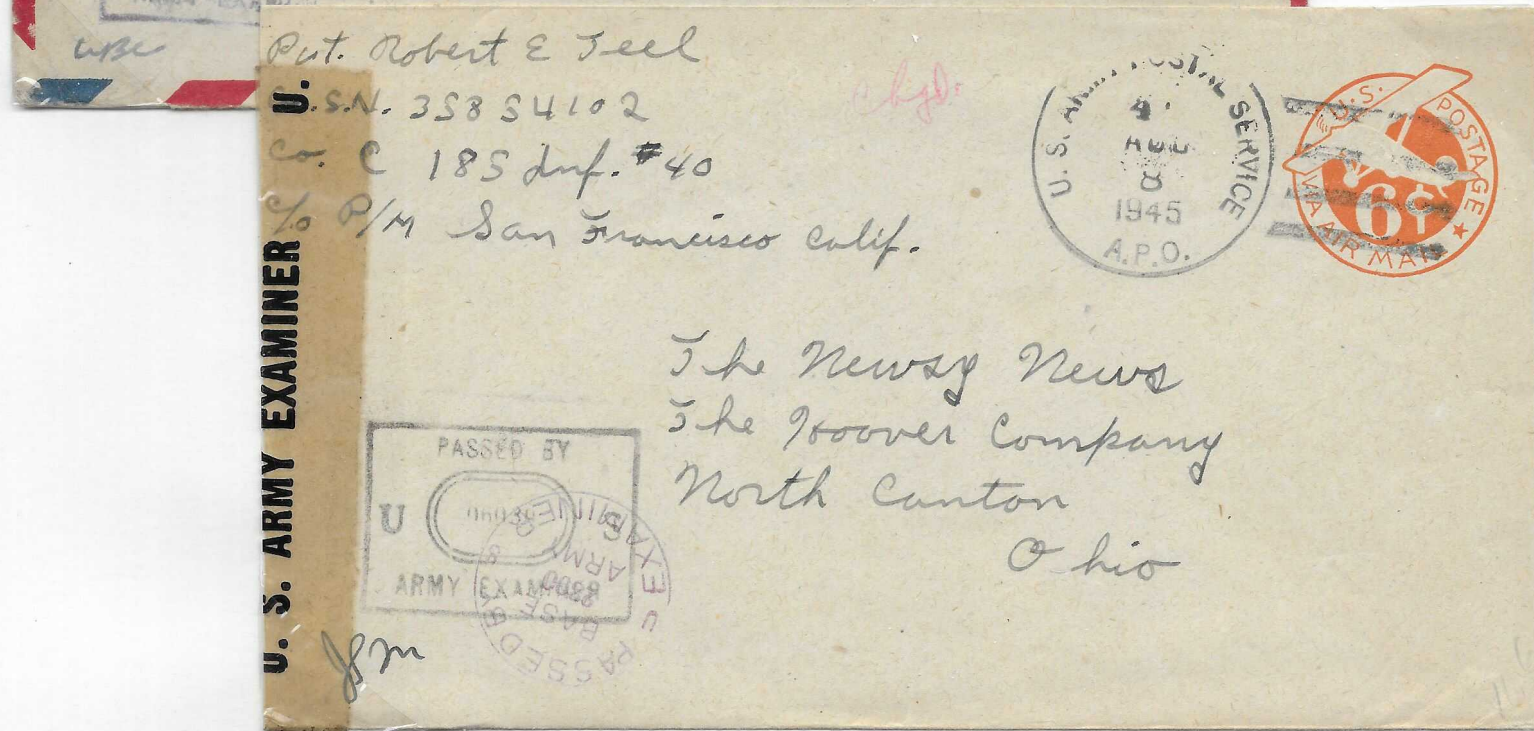 WBC
Pvt. Robert E Teel
A.S.N. 35854102
Co. C 185 Inf. #40
c/o P/M San Francisco Calif.
chgd.
U.S. ARMY POSTAL SERVICE
AUG
8
1945
A.P.O.
U.S. POSTAGE
6¢
VIA AIR MAIL
The Newsy News
The Hoover Company
North Canton
Ohio
U. S. ARMY EXAMINER U.
PASSED BY
U S
ARMY EXAMINER
PASSED BY
BASE
ARMY
U S EXAMINER
JSM